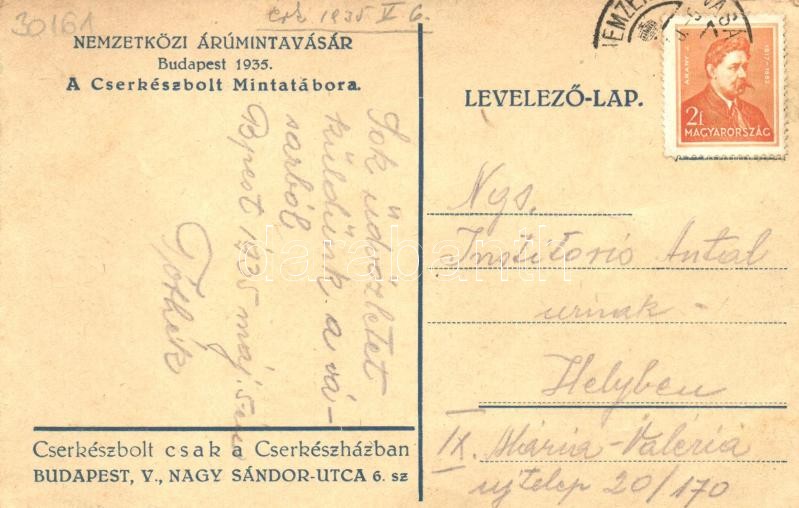 30161
érk 1935 V 6.
NEMZETKÖZI ÁRÚMINTAVÁSÁR
Budapest 1935.
A Cserkészbolt Mintatábora.
Sok üdvözletet
küldünk a vá-
sárból
Bpest 1935 máj. 5-én
Tóthék
Cserkészbolt csak a Cserkészházban
BUDAPEST, V., NAGY SÁNDOR-UTCA 6. sz
LEVELEZŐ-LAP.
ARANY J. 1817-1882
2f
MAGYARORSZÁG
Ngs.
Institoris Antal
úrnak-
Helyben
IX. Mária-Valéria
ujtelep 20/170
darabanth